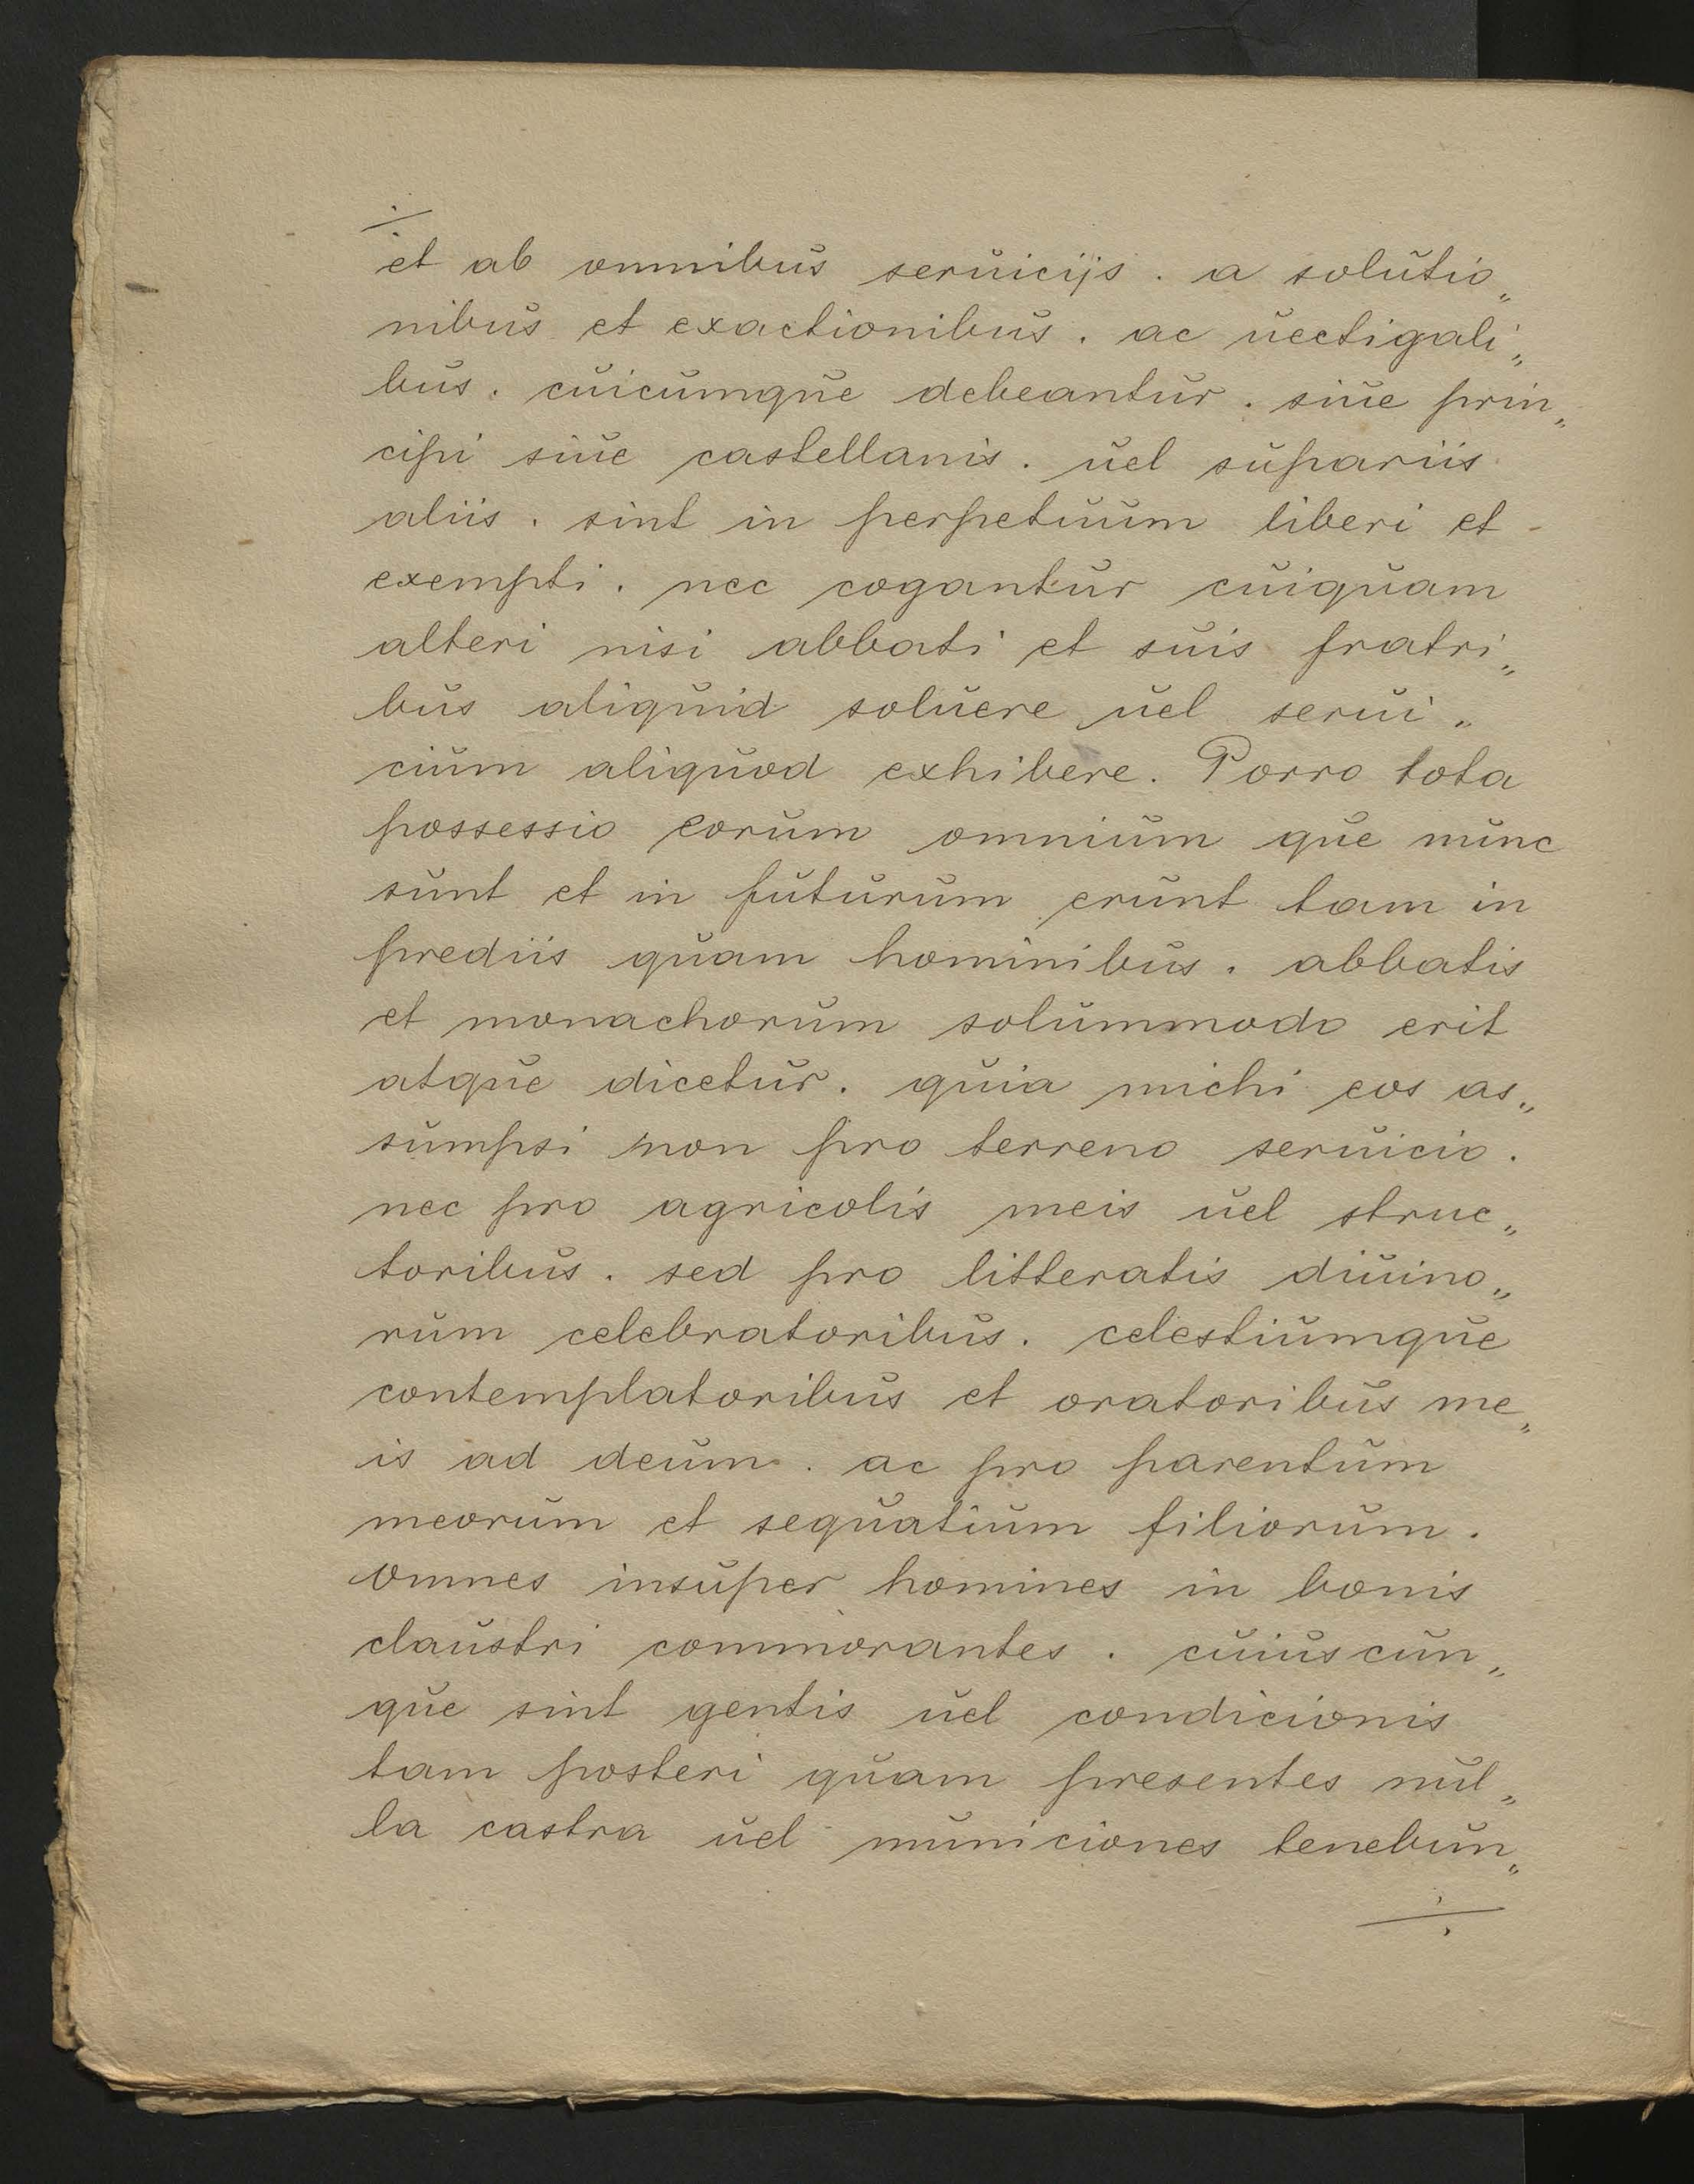 ./.
et ab omnibus seruicijs . a solutio„
nibus et exactionibus . ac uectigali„
bus . cuicumque debeantur . siue prin„
cipi siue castellanis . uel supariis
aliis . sint in perpetuum liberi et
exempti . nec cogantur cuiquam
alteri nisi abbati et suis fratri„
bus aliquid soluere uel serui„
cium aliquod exhibere . Porro tota
possessio eorum omnium que nunc
sunt et in futurum erunt tam in
prediis quam hominibus . abbatis
et monachorum solummodo erit
atque dicetur . quia michi eos as„
sumpsi non pro terreno seruicio .
nec pro agricolis meis uel struc„
toribus . sed pro litteratis diuino„
rum celebratoribus . celestiumque
contemplatoribus et oratoribus me„
is ad deum . ac pro parentum
meorum et sequatium filiorum .
omnes insuper homines in bonis
claustri commorantes . cuiuscun„
que sint gentis uel condicionis
tam posteri quam presentes nul„
la castra uel municiones tenebun„
./.